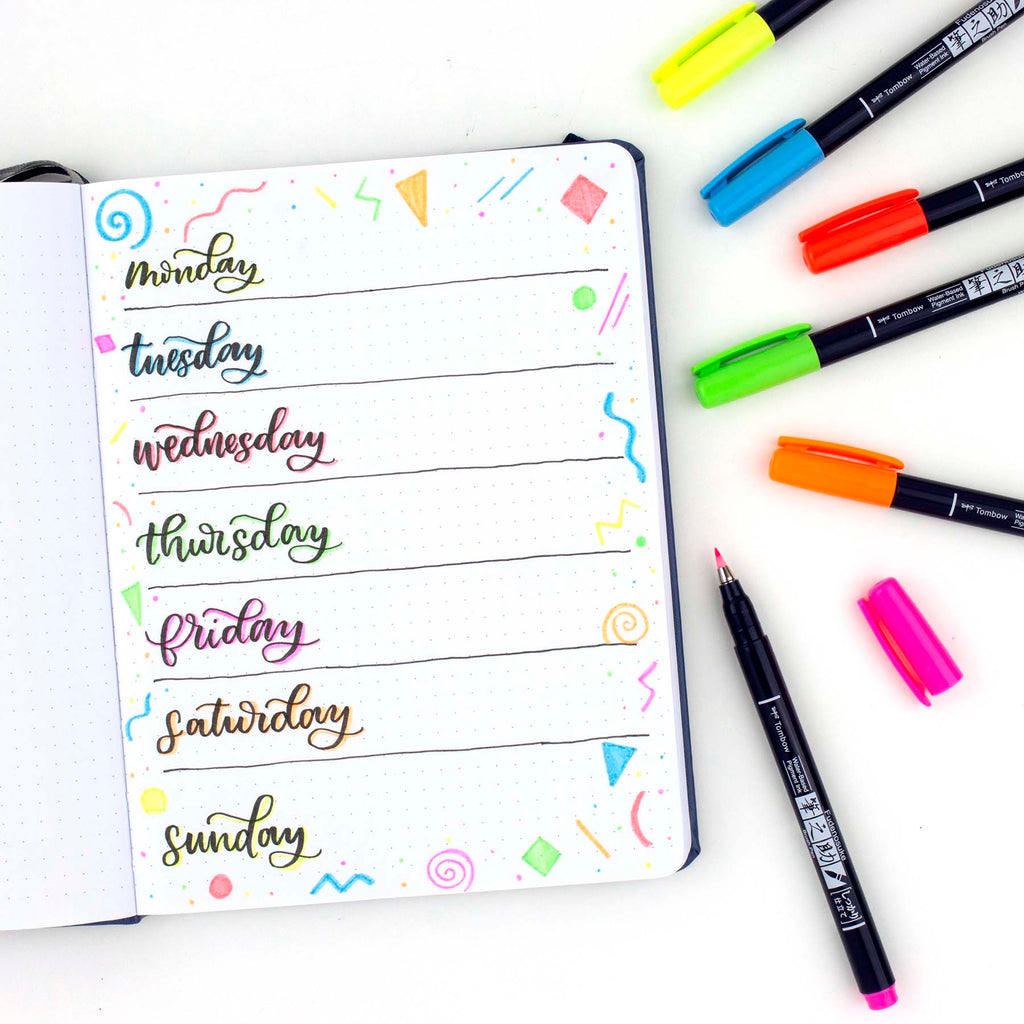 monday
tuesday
wednesday
thursday
friday
saturday
sunday
Tombow
Water-Based
Pigment Ink
筆之助
Fudenosuke
Brush Pen
Tombow
Tombow
Water-Based
Pigment Ink
筆之助
Fudenosuke
Brush Pen
Tombow
Tombow
Water-Based
Pigment Ink
筆之助
Fudenosuke